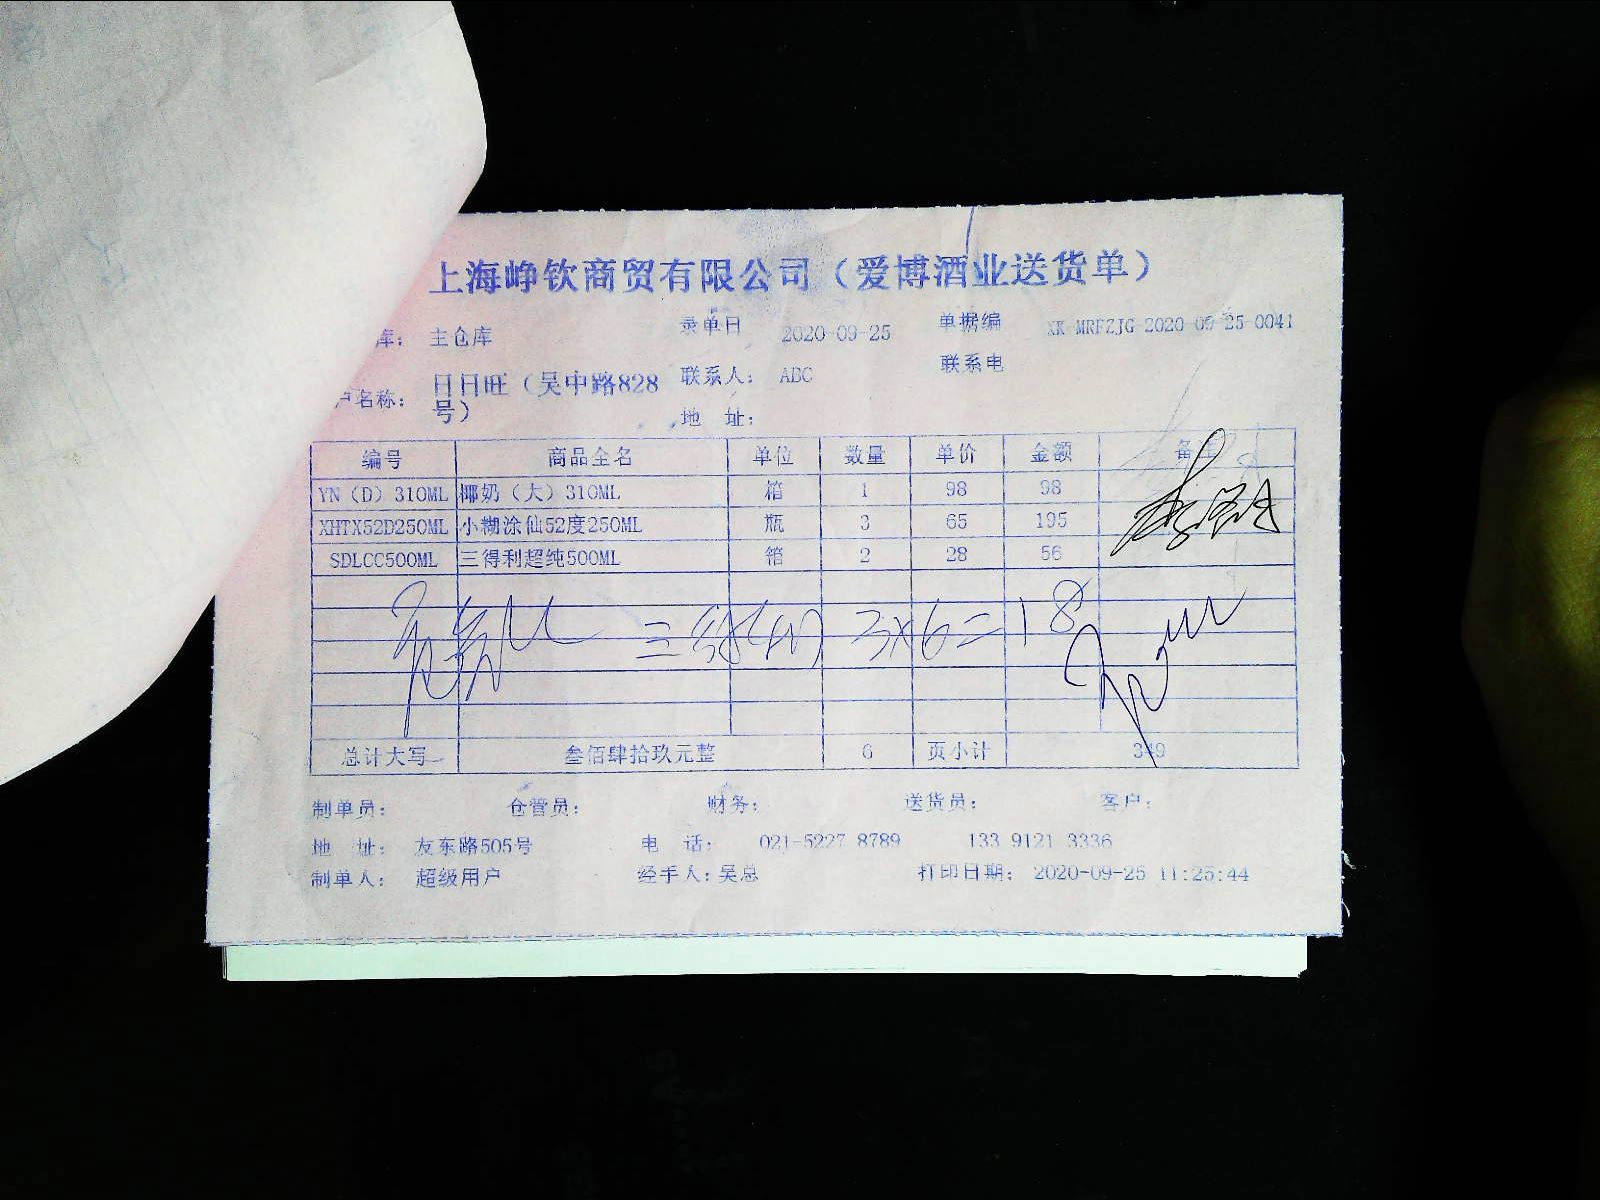 上海峥钦商贸有限公司（爱博酒业送货单）
库： 主仓库 录单日 2020-09-25 单据编 XK-MRFZJG-2020-09-25-0041
户名称： 日日旺（吴中路828号） 联系人： ABC 联系电
地 址：
编号 商品全名 单位 数量 单价 金额 备注
YN（D）310ML 椰奶（大）310ML 箱 1 98 98
XHTX52D250ML 小糊涂仙52度250ML 瓶 3 65 195
SDLCC500ML 三得利超纯500ML 箱 2 28 56
3×6=18
总计大写 叁佰肆拾玖元整 6 页小计 349
制单员： 仓管员： 财务： 送货员： 客户：
地 址： 友东路505号 电 话： 021-5227 8789 133 9121 3336
制单人： 超级用户 经手人：吴总 打印日期： 2020-09-25 11:25:44